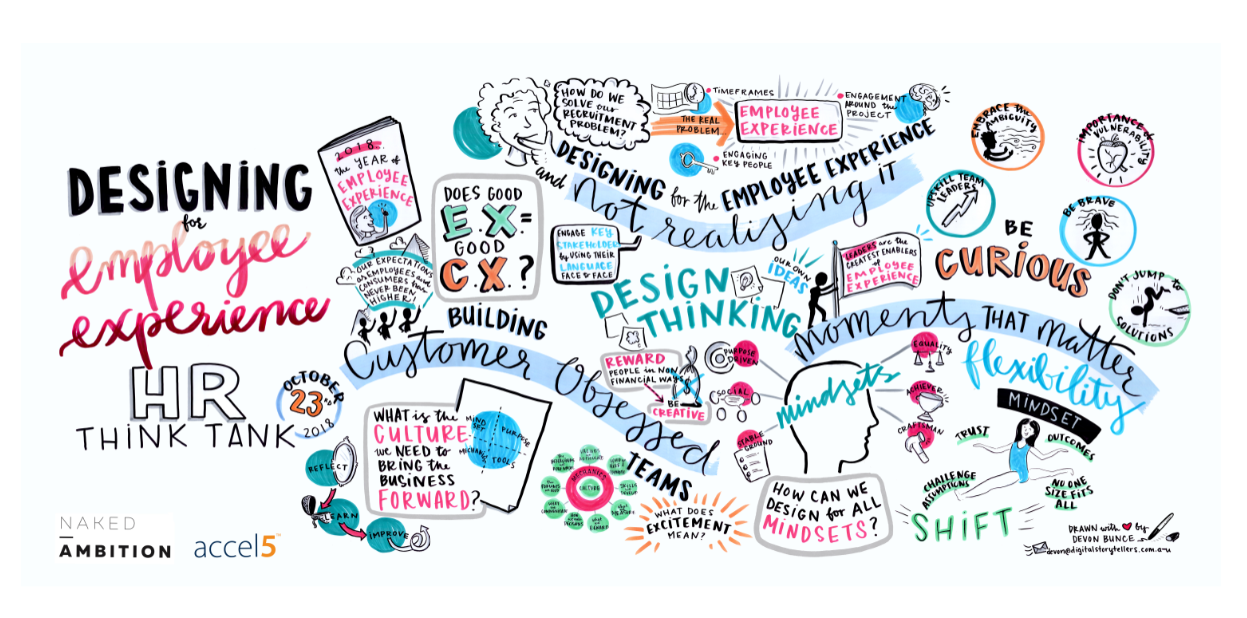 DESIGNING
for
employee
experience
HR
THINK TANK
OCTOBER
23RD
2018
NAKED
AMBITION
accel5
2018
the YEAR of
EMPLOYEE
EXPERIENCE
OUR EXPECTATIONS
as EMPLOYEES and
CONSUMERS have
NEVER BEEN
HIGHER!
DOES GOOD
EX =
GOOD
CX.?
HOW DO WE
SOLVE our
RECRUITMENT
PROBLEM?
TIMEFRAMES
THE REAL
PROBLEM
EMPLOYEE
EXPERIENCE
ENGAGEMENT
AROUND the
PROJECT
ENGAGING
KEY PEOPLE
DESIGNING for the EMPLOYEE EXPERIENCE
and Not realising IT
ENGAGE KEY
STAKEHOLDER
by USING THEIR
LANGUAGE
FACE to FACE
DESIGN
THINKING
OUR OWN
IDEAS
LEADERS are the
GREATEST ENABLERS
of
EMPLOYEE
EXPERIENCE
EMBRACE the
AMBIGUITY
IMPORTANCE of
VULNERABILITY
UPSKILL TEAM
LEADERS
BE BRAVE
BE
CURIOUS
DON'T JUMP to
SOLUTIONS
BUILDING
Customer Obsessed
TEAMS
REFLECT
LEARN
IMPROVE
WHAT is the
CULTURE
we NEED to
BRING the
BUSINESS
FORWARD?
MIND
SET
PURPOSE
MECHANISM
TOOLS
MECHANISMS
CULTURE
REWARD
PEOPLE in NON
FINANCIAL WAYS
BE
CREATIVE
WHAT DOES
EXCITEMENT
MEAN?
Moments THAT Matter
mindsets
PURPOSE
DRIVEN
SOCIAL
STABLE
GROUND
EQUALITY
ACHIEVER
CRAFTSMAN
HOW CAN WE
DESIGN for ALL
MINDSETS?
flexibility
MINDSET
TRUST
OUTCOMES
CHALLENGE
ASSUMPTIONS
NO ONE
SIZE FITS
ALL
SHIFT
DRAWN with by
DEVON BUNCE
devon@digitalstorytellers.com.au